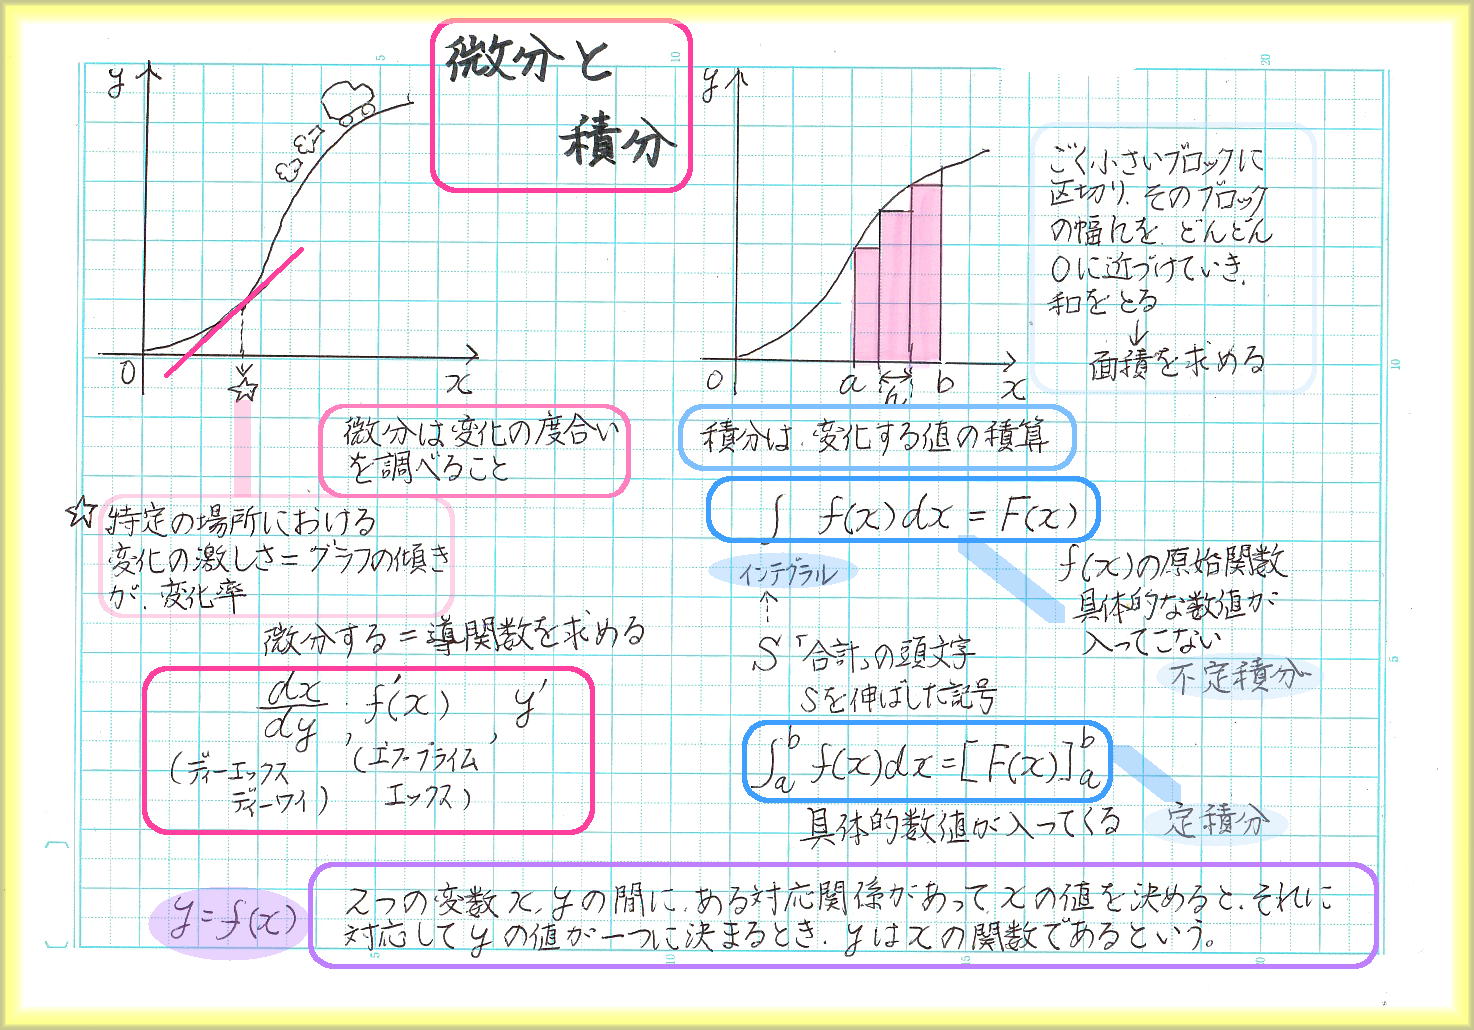 微分と
積分
y
O
x
☆
微分は変化の度合い
を調べること
☆特定の場所における
変化の激しさ=グラフの傾き
が、変化率
微分する=導関数を求める
dx/dy , f'(x) , y'
(ディーエックス
ディーワイ)
(エフプライム
エックス)
y
O
a
h
b
x
ごく小さいブロックに
区切り、そのブロック
の幅hを、どんどん
0に近づけていき、
和をとる
↓
面積を求める
積分は、変化する値の積算
∫ f(x)dx = F(x)
インテグラル
↑
S「合計」の頭文字
Sを伸ばした記号
f(x)の原始関数
具体的な数値が
入ってこない
不定積分
∫ₐᵇ f(x)dx=[F(x)]ₐᵇ
具体的数値が入ってくる
定積分
y=f(x)
2つの変数x,yの間に、ある対応関係があって、xの値を決めると、それに
対応してyの値が一つに決まるとき、yはxの関数であるという。
5
10
20
10
5
5
10
15
20